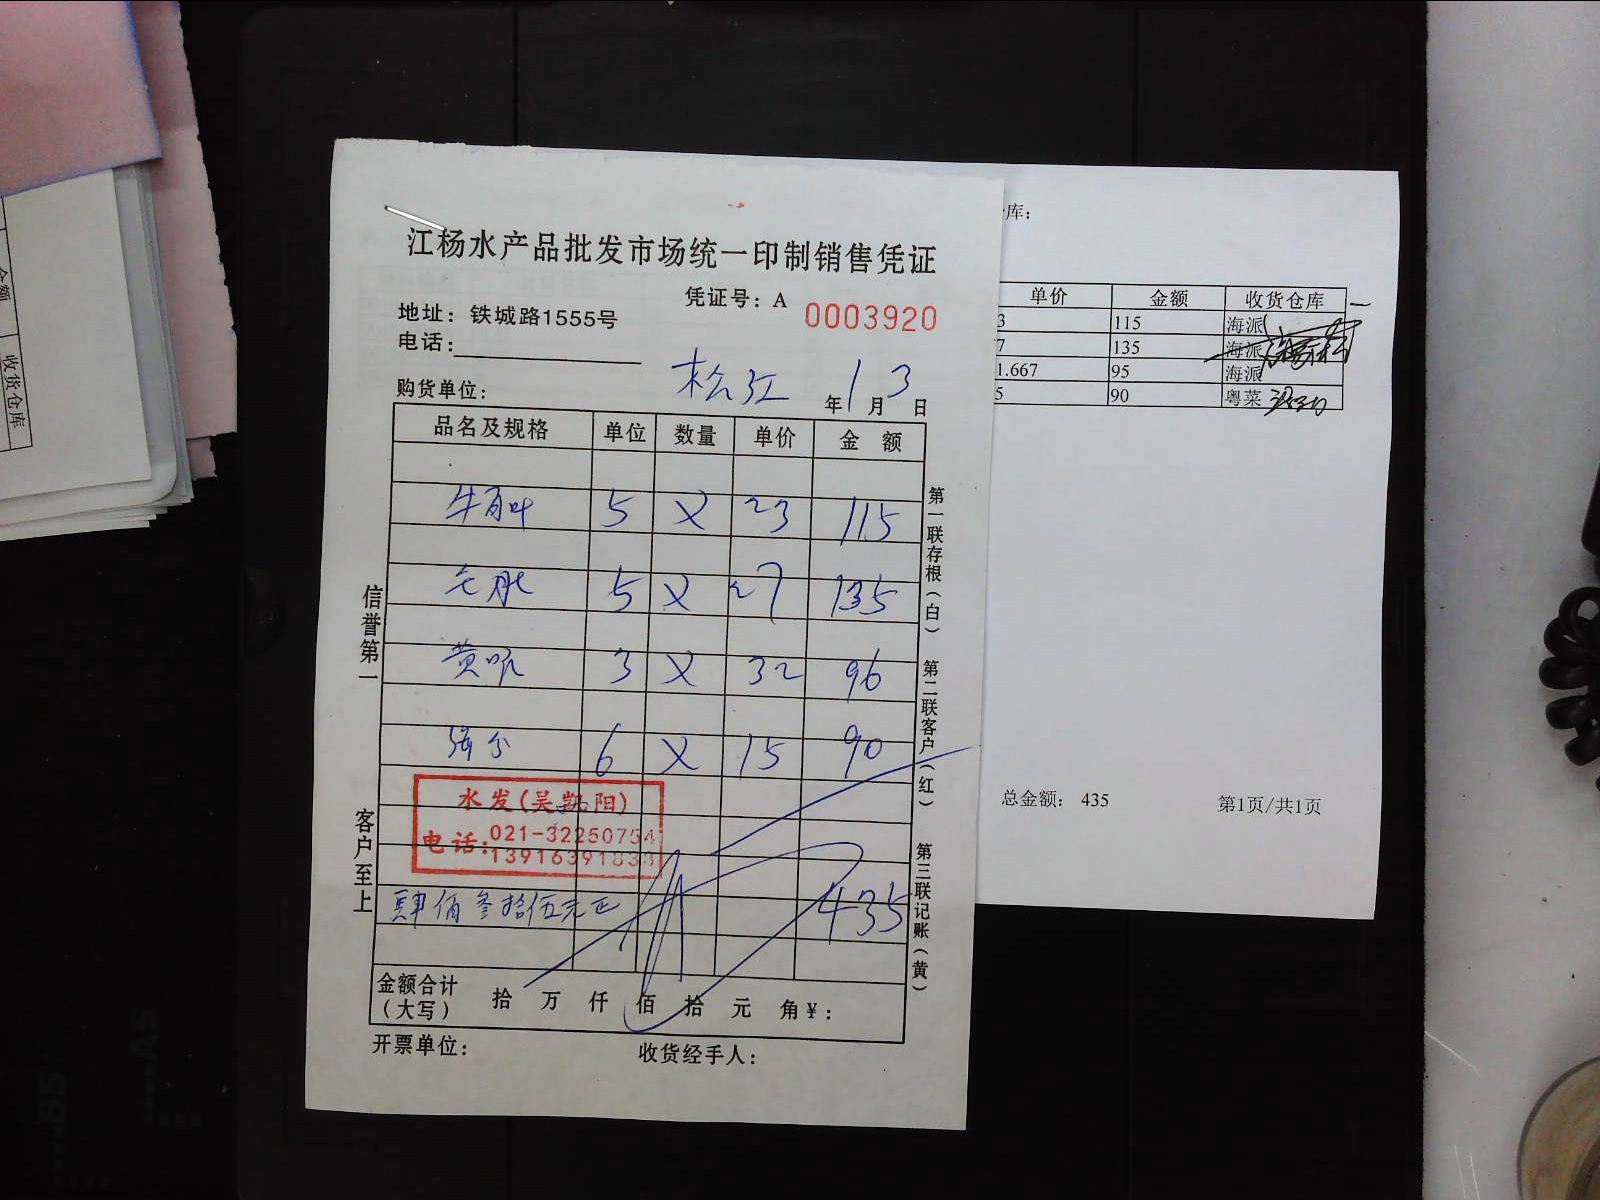 江杨水产品批发市场统一印制销售凭证
凭证号：A 0003920
地址：铁城路1555号
电话：
购货单位： 松江 年 1 月 3 日
品名及规格 单位 数量 单价 金 额
牛百叶 5 X 23 115
毛肚 5 X 27 135
黄喉 3 X 32 96
6 X 15 90
水发(吴凯阳)
电话：021-32250754
肆佰叁拾伍元正 435
金额合计（大写） 拾 万 仟 佰 拾 元 角 ¥：
开票单位： 收货经手人：
信誉第一
客户至上
第一联存根（白）
第二联客户（红）
第三联记账（黄）
库：
单价 金额 收货仓库
3 115 海派
7 135 海派
1.667 95 海派
5 90 粤菜
总金额： 435 第1页/共1页
金额
收货仓库
B5
A5